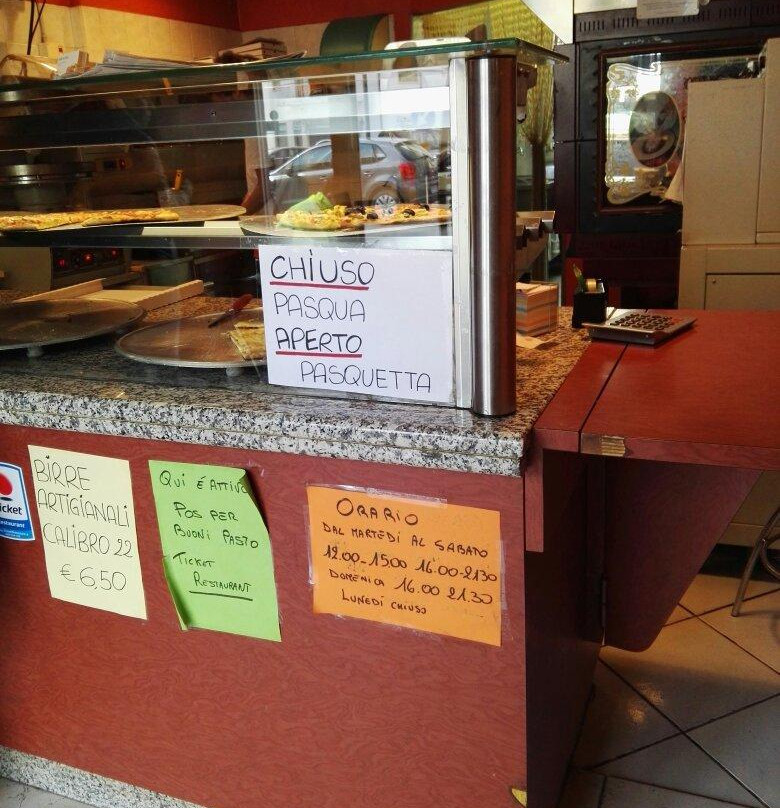 CHIUSO
PASQUA
APERTO
PASQUETTA
BIRRE
ARTIGIANALI
CALIBRO 22
€ 6,50
QUI È ATTIVO
POS PER
BUONI PASTO
TICKET
RESTAURANT
ORARIO
DAL MARTEDÌ AL SABATO
12.00-15.00 16.00-21.30
DOMENICA 16.00 21.30
LUNEDÌ CHIUSO
icket
estaurant